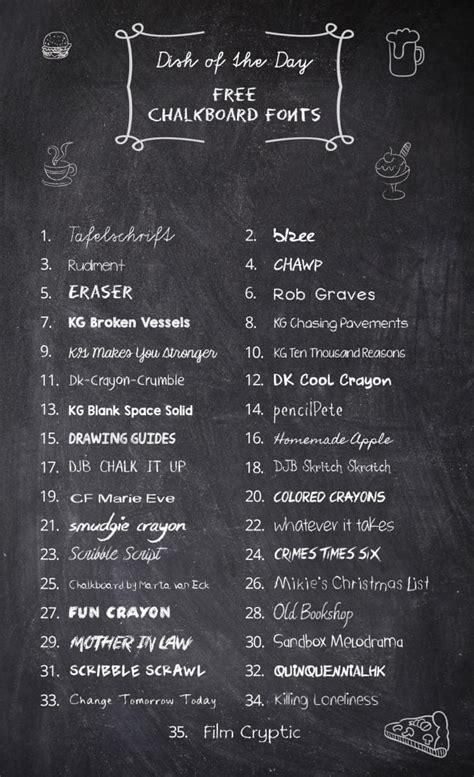 Dish of the Day
FREE
CHALKBOARD FONTS
1. Tafelschrift 2. blzee
3. Rudiment 4. CHAWP
5. ERASER 6. Rob Graves
7. KG Broken Vessels 8. KG Chasing Pavements
9. KG Makes You Stronger 10. KG Ten Thousand Reasons
11. Dk-Crayon-Crumble 12. DK Cool Crayon
13. KG Blank Space Solid 14. pencilPete
15. DRAWING GUIDES 16. Homemade Apple
17. DJB CHALK IT UP 18. DJB Skritch Skratch
19. CF Marie Eve 20. COLORED CRAYONS
21. smudgie crayon 22. whatever it takes
23. Scribble Script 24. CRIMES TIMES SIX
25. Chalkboard by Marta van Eck 26. Mikie's Christmas List
27. FUN CRAYON 28. Old Bookshop
29. MOTHER IN LAW 30. Sandbox Melodrama
31. SCRIBBLE SCRAWL 32. QUINQUENNIALHK
33. Change Tomorrow Today 34. Killing Loneliness
35. Film Cryptic